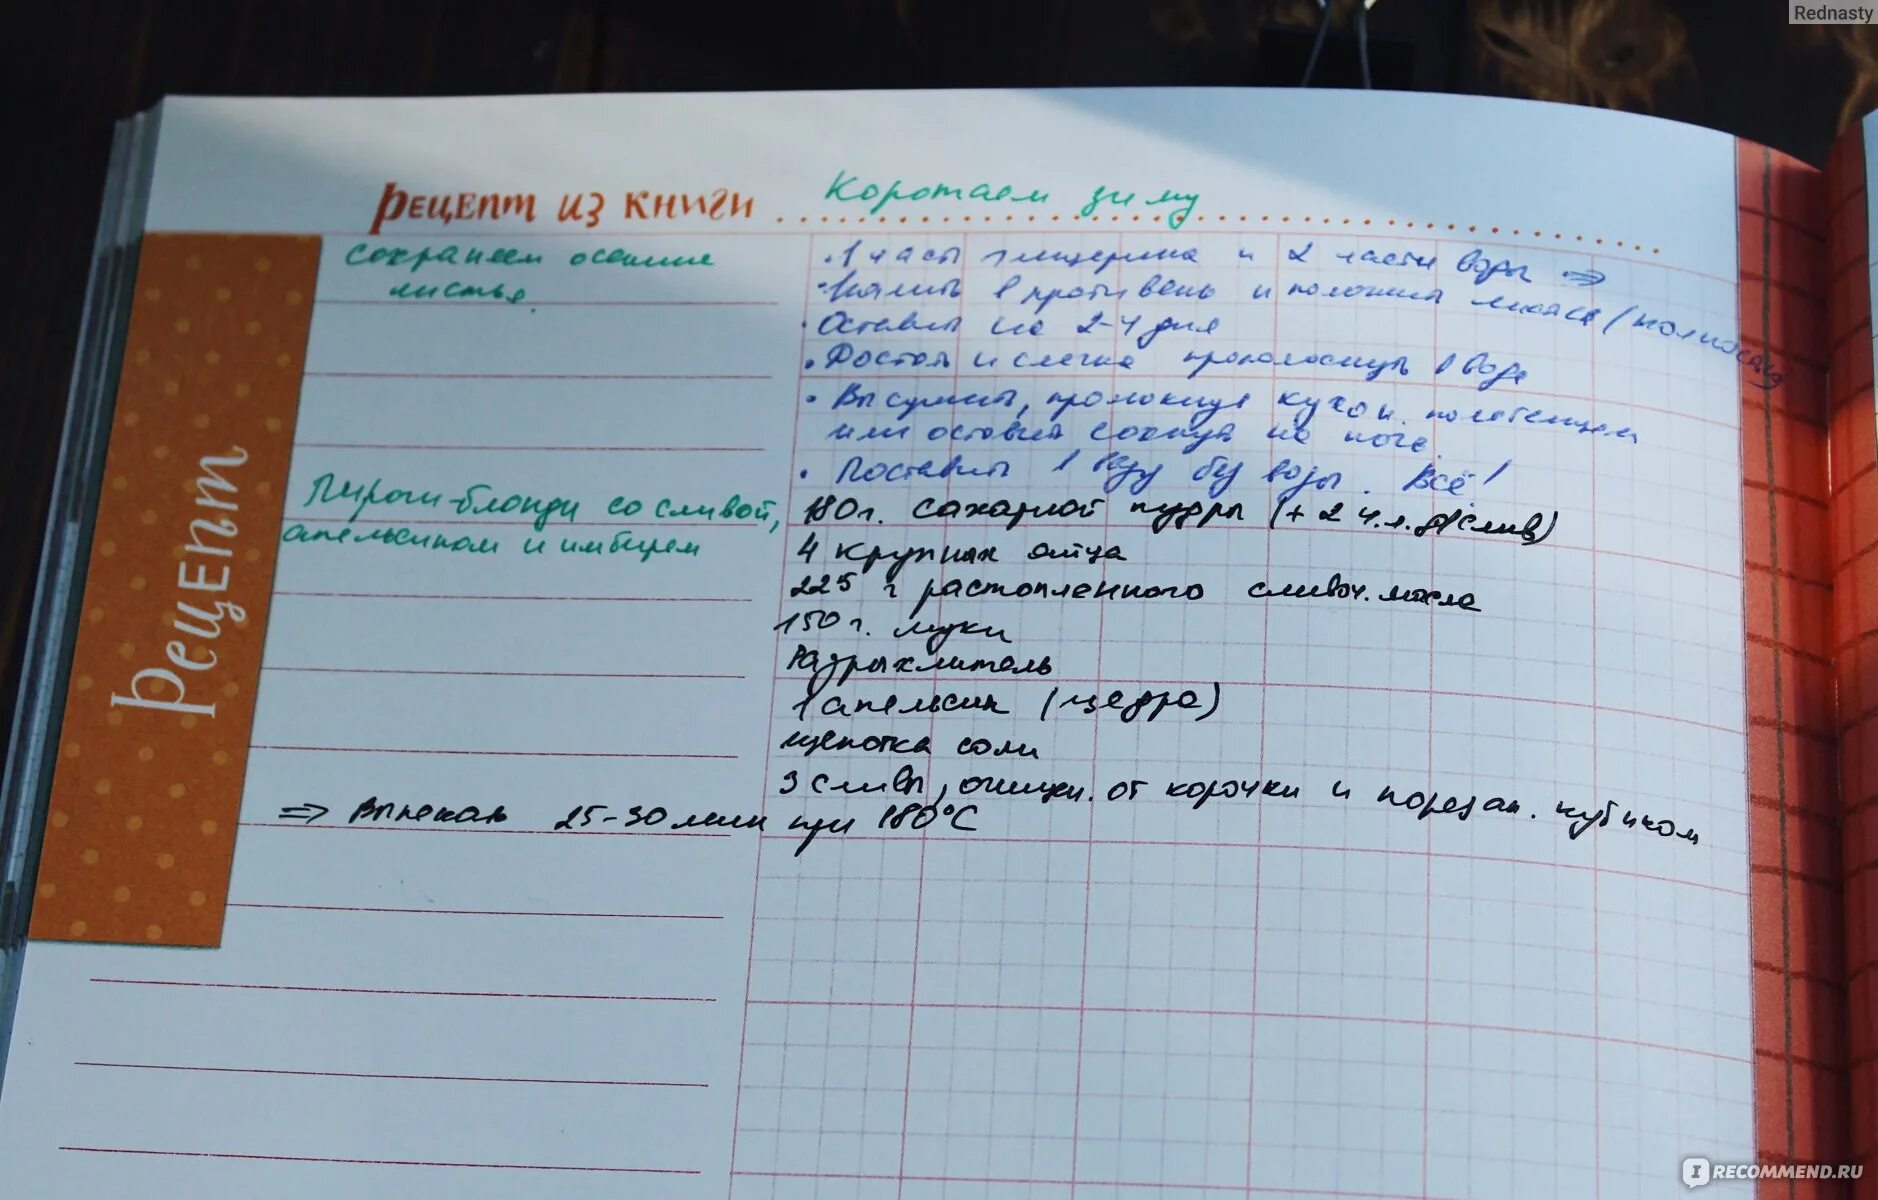 Rednasty
Рецепт из книги Коротаем зиму
Рецепт
Сохраняем осенние
листья.
• 1 часть глицерина и 2 части воды ⇒
• Налить в противень и положить листья (
• Оставить на 2-4 дня
• Достать и слегка прополоснуть в воде
• Высушить, промокнув кухон. полотенцем
или оставить сохнуть на ночь.
• Поставить в вазу без воды. Всё!
Пироги-блонди со сливой,
апельсином и имбирем
180 г. сахарной пудры (+ 2 ч.л. д/слив)
4 крупных яйца
225 г растопленного сливоч. масла
150 г. муки
Разрыхлитель
1 апельсин (цедра)
щепотка соли
3 сливы, очищен. от корочки и порезан. кубиком
⇒ Выпекать 25-30 мин при 180°C
IRECOMMEND.RU